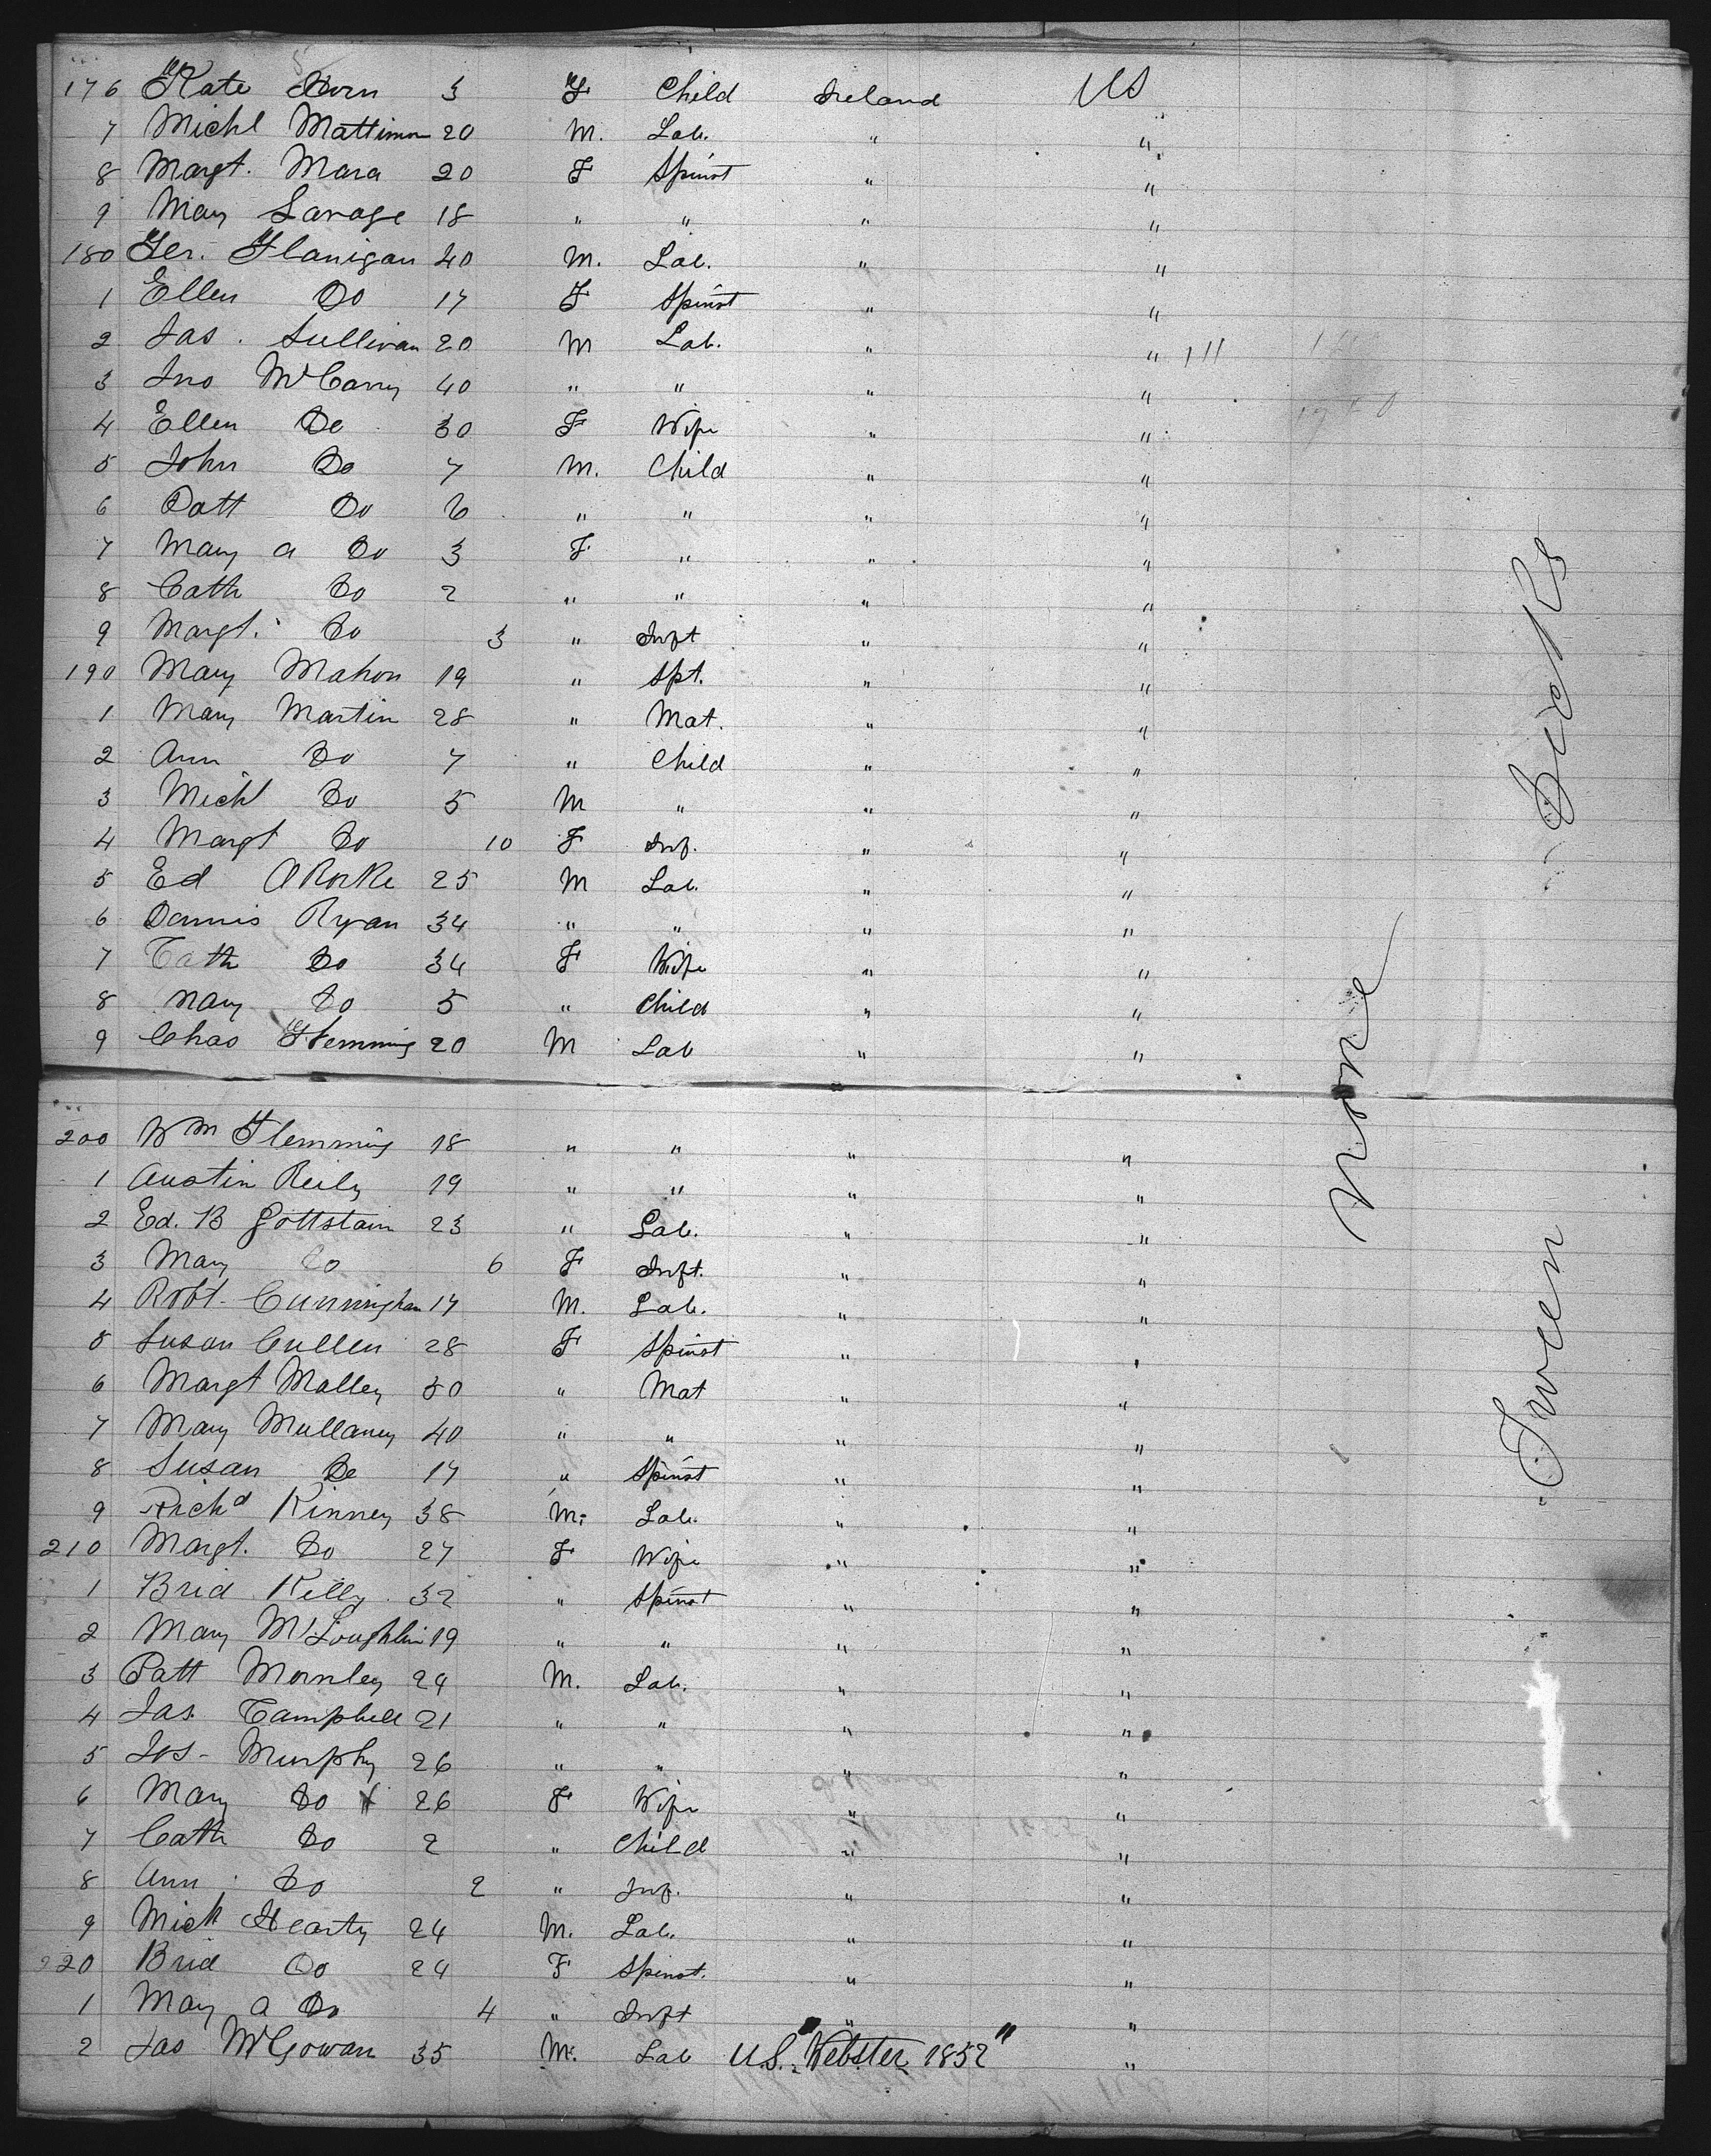 176 Kate 3 F Child Ireland US
7 Michl Mattimon 20 M. Lab. " "
8 Margt. Mara 20 F Spinst " "
9 Mary Savage 18 " " " "
180 Jer. Flanigan 40 M. Lab. " "
1 Ellen Do 17 F Spinst " "
2 Jas. Sullivan 20 M Lab. " "
3 Jno McCarry 40 " " " "
4 Ellen Do 30 F Wife " "
5 John Do 7 M. Child " "
6 Patt Do 6 " " " "
7 Mary A Do 3 F " " "
8 Cath Do 2 " " " "
9 Margt. Do 3 " Inft " "
190 Mary Mahon 19 " Spt. " "
1 Mary Martin 28 " Mat. " "
2 Ann Do 7 " Child " "
3 Michl Do 5 M " " "
4 Margt Do 10 F Inf. " "
5 Ed ORorke 25 M Lab. " "
6 Dennis Ryan 34 " " " "
7 Cath Do 34 F Wife " "
8 Mary Do 5 " Child " "
9 Chas Flemming 20 M Lab " "
200 Wm Flemming 18 " " " "
1 Austin Reily 19 " " " "
2 Ed. B Gottstain 23 " Lab. " "
3 Mary Do 6 F Inft. " "
4 Robt. Cunningham 17 M. Lab. " "
5 Susan Cullen 28 F Spinst " "
6 Margt Malley 30 " Mat " "
7 Mary Mullaney 40 " " " "
8 Susan Do 17 " Spinst " "
9 Richd Kinney 38 M. Lab. " "
210 Margt. Do 27 F Wife " "
1 Brid Kelly 32 " Spinst " "
2 Mary McLoughlin 19 " " " "
3 Patt Mornley 24 M. Lab. " "
4 Jas. Campbell 21 " " " "
5 Jos. Murphy 26 " " " "
6 Mary Do 26 F Wife " "
7 Cath Do 2 " Child " "
8 Ann Do 2 " Inf. " "
9 Mick Hearty 24 M. Lab. " "
220 Brid Do 24 F Spinst. " "
1 Mary A Do 4 " Inft " "
2 Jas McGowan 35 M. Lab U.S. "Webster 1852" "
None
Tween Decks